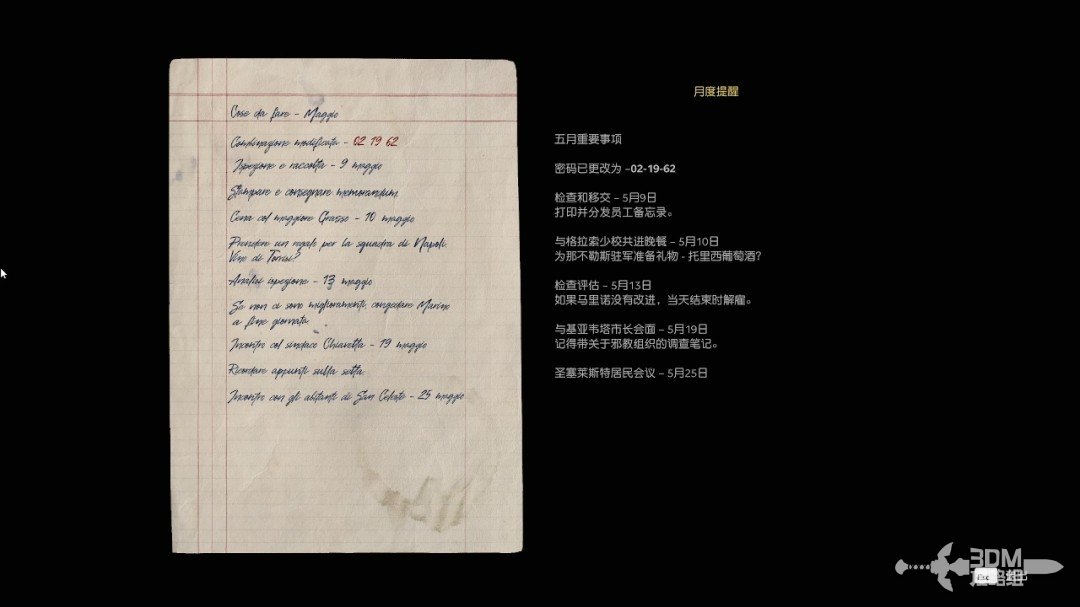 Cose da fare - Maggio
Combinazione modificata - 02 19 62
Ispezione e raccolta - 9 maggio
Stampare e consegnare memorandum
Cena col maggiore Grasso - 10 maggio
Prendere un regalo per la squadra di Napoli.
Vino di Torrisi?
Analisi ispezione - 13 maggio
Se non ci sono miglioramenti, congedare Marino
a fine giornata.
Incontro col sindaco Chiavetta - 19 maggio
Ricordare appunti sulla setta
Incontro con gli abitanti di San Celeste - 25 maggio
月度提醒
五月重要事项
密码已更改为 –02-19-62
检查和移交 – 5月9日
打印并分发员工备忘录。
与格拉索少校共进晚餐 – 5月10日
为那不勒斯驻军准备礼物 - 托里西葡萄酒?
检查评估 – 5月13日
如果马里诺没有改进，当天结束时解雇。
与基亚韦塔市长会面 – 5月19日
记得带关于邪教组织的调查笔记。
圣塞莱斯特居民会议 – 5月25日
3DM
Esc